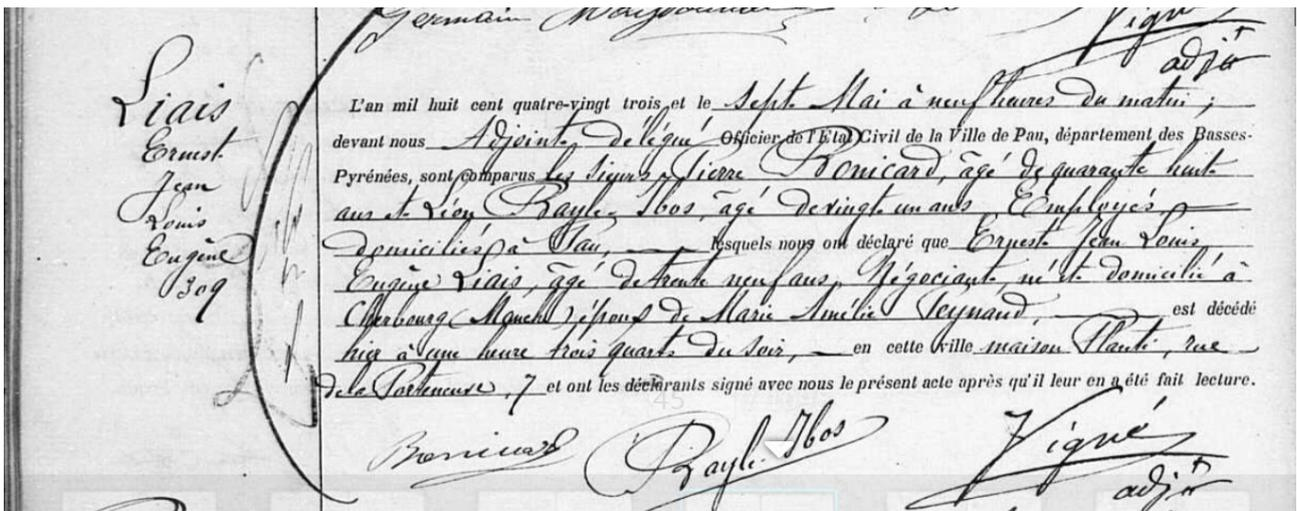 Germain
Vigné
adjt
Liais
Ernest
Jean
Louis
Eugène
309
L'an mil huit cent quatre-vingt trois, et le Sept Mai à neuf heures du matin ;
devant nous Adjoint délégué Officier de l'Etat Civil de la Ville de Pau, département des Basses-
Pyrénées, sont comparus les sieurs Pierre Bonicard, âgé de quarante huit
ans et Léon Bayle-Ibos, âgé de vingt un ans, Employés
domiciliés à Pau, lesquels nous ont déclaré que Ernest Jean Louis
Eugène Liais, âgé de trente neuf ans, Négociant, né et domicilié à
Cherbourg (Manche), époux de Marie Amélie Teynaud, est décédé
hier à une heure trois quarts du soir, en cette ville maison Planté, rue
de la Porteneuve, 7 et ont les déclarants signé avec nous le présent acte après qu'il leur en a été fait lecture.
45
Bonicard Bayle-Ibos Vigné
adjt